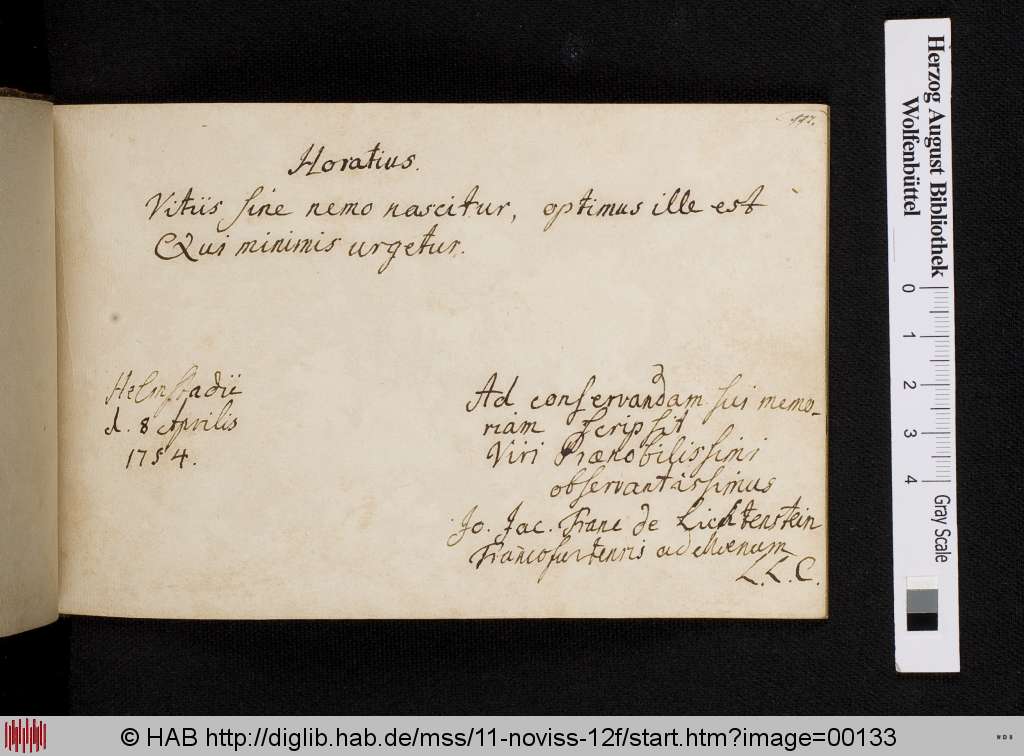 117.
Horatius.
Vitiis sine nemo nascitur, optimus ille est
Qui minimis urgetur.
Helmstadii
d. 8 Aprilis
1754.
Ad conservandam sui memo-
riam scripsit
Viri Prænobilissimi
observantissimus
Jo. Jac. Franc de Lichtenstein
Francofurtensis ad Moenum
L.L.C.
Herzog August Bibliothek
Wolfenbüttel
0 1 2 3 4
Gray Scale
© HAB http://diglib.hab.de/mss/11-noviss-12f/start.htm?image=00133